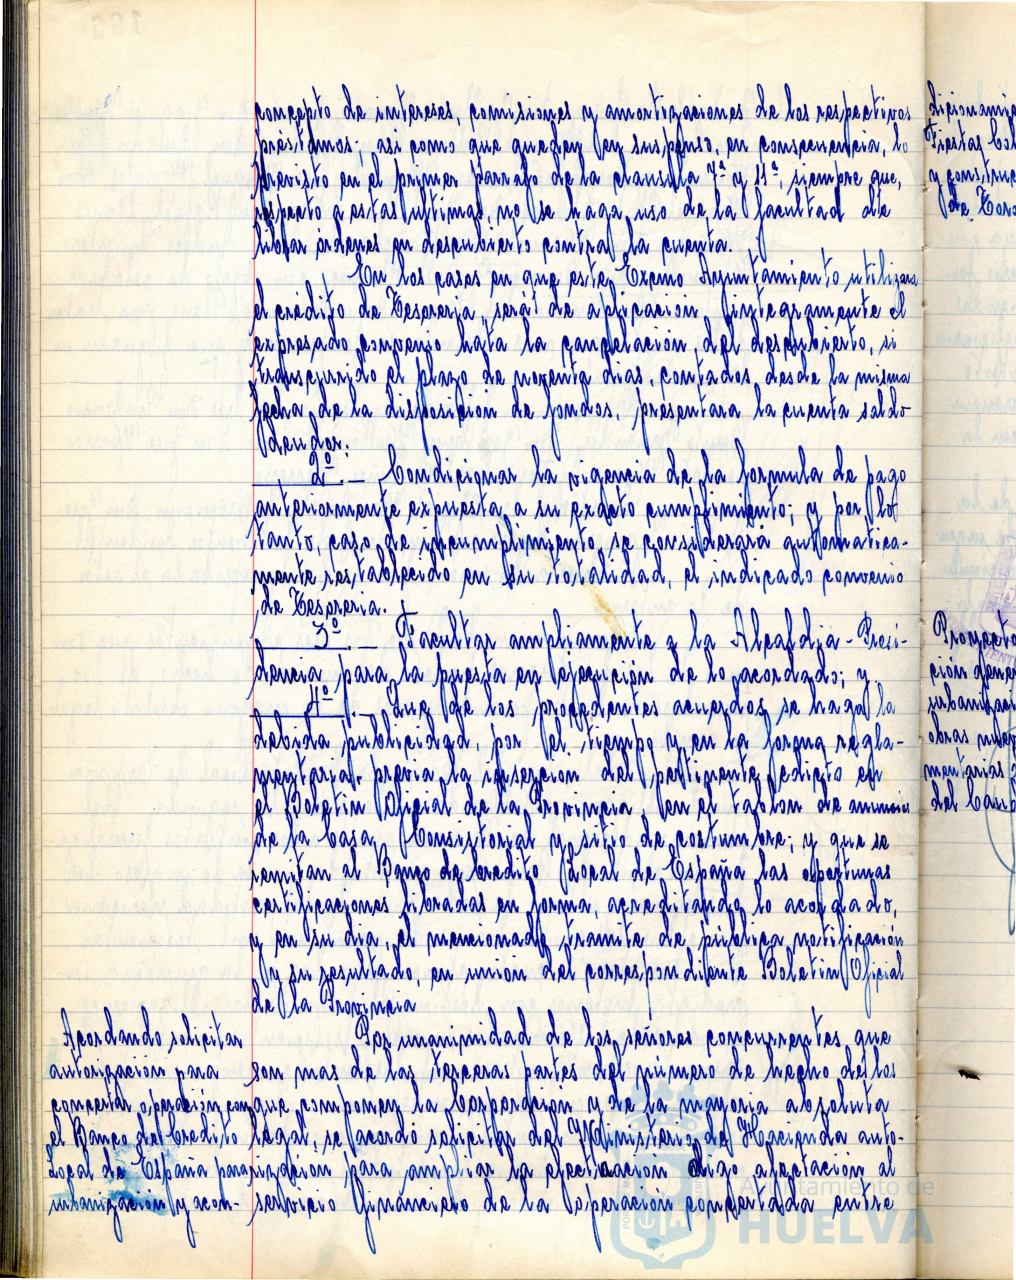 concepto de intereses, comisiones y amortizaciones de los respectivos
prestamos; asi como que queden en suspenso, en consecuencia, lo
previsto en el primer parrafo de la clausula 7ª y 11ª, siempre que,
respecto a estas ultimas, no se haga uso de la facultad de
librar órdenes en descubierto contra la cuenta.
En los casos en que este Excmo Ayuntamiento utilizara
el credito de Tesoreria, será de aplicacion integramente el
expresado convenio hasta la cancelación del descubierto, si
transcurrido el plazo de noventa dias, contados desde la misma
fecha de la disposición de fondos, presentara la cuenta saldo
deudor.
2º.- Condicionar la vigencia de la formula de pago
anteriormente expuesta, a su exacto cumplimiento; y por lo
tanto, caso de incumplimiento, se considerará automatica-
mente restablecido en su totalidad, el indicado convenio
de Tesoreria.
3º.- Facultar ampliamente a la Alcaldia-Presi-
dencia para la puesta en ejecución de lo acordado; y
4º.- Que de los precedentes acuerdos, se haga la
debida publicidad, por el tiempo y en la forma regla-
mentaria, previa la inserción del pertinente edicto en
el Boletin Oficial de la Provincia, en el tablon de anuncios
de la Casa Consistorial y sitio de costumbre; y que se
remitan al Banco de Credito Local de España las oportunas
certificaciones libradas en forma, acreditando lo acordado,
y en su dia, el mencionado tramite de pública notificación
y su resultado, en union del correspondiente Boletin Oficial
de la Provincia
Acordando solicitar
autorización para
concertar operación con
el Banco de Credito
Local de España para
urbanización y acon-
Por unanimidad de los señores concurrentes que
son mas de las terceras partes del número de hecho de los
que componen la Corporación y de la mayoria absoluta
legal, se acordó solicitar del Ministerio de Hacienda auto-
rización para ampliar la efectuacion digo afectación al
servicio financiero de la operación concertada entre
dicionamie
Fiestas Col
y construc
de Toro
Proyecto
ción gener
urbanizaci
obras
mentarias
del
Ayuntamiento de
HUELVA